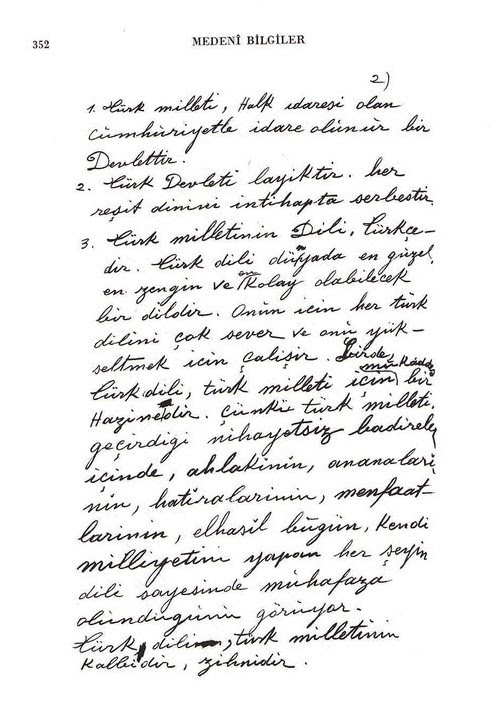 352
MEDENÎ BİLGİLER
2)
1. Türk milleti, Halk idaresi olan
Cümhüriyetle idare olünür bir
Devlettir.
2. Türk Devleti layiktir. her
reşit dinini intihapta serbestir.
3. Türk milletinin Dili, Türkçe-
dir. Türk dili dünyada en güzel,
en zengin ve en Kolay olabilecek
bir dildir. Onün için her türk
dilini çok sever ve onü yük-
seltmek için çalişir. Birde,
Türk dili, türk milleti için mükaddes bir
Hazinedir. Çünkü türk milleti,
geçirdigi nihayetsiz badireler
içinde, ahlakinin, ananalari
nin, hatiralarinin, menfaat-
larinin, elhasil bügün, Kendi
milliyetini yapan her şeyin
dili sayesinde mühafaza
olündügünü görüyor.
Türk dili, türk milletinin
Kalbidir, zihnidir.